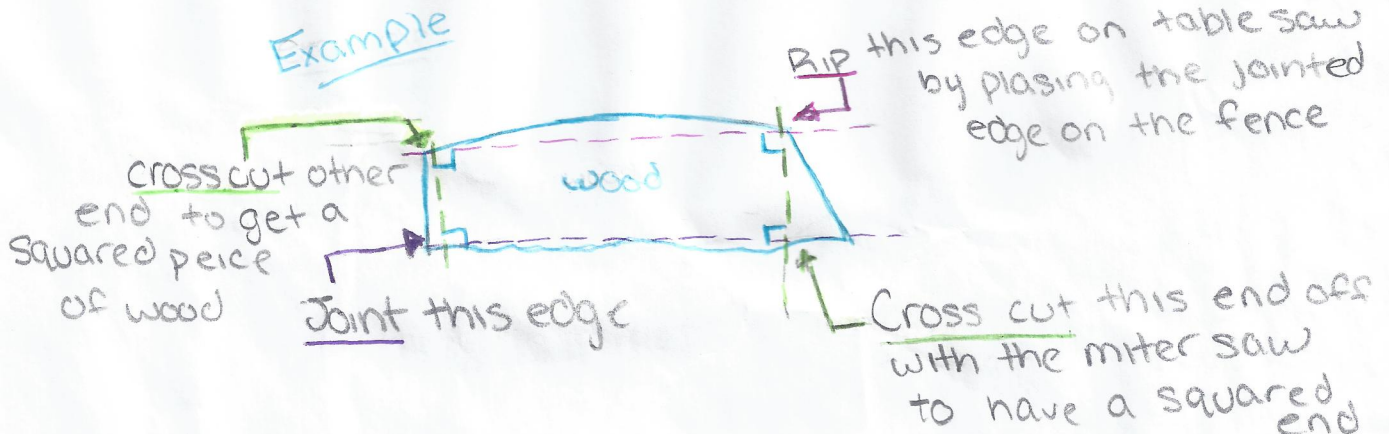 Example
Rip this edge on table saw
by plasing the jointed
edge on the fence
cross cut other
end to get a
squared peice
of wood
wood
Joint this edge
Cross cut this end off
with the miter saw
to have a squared
end